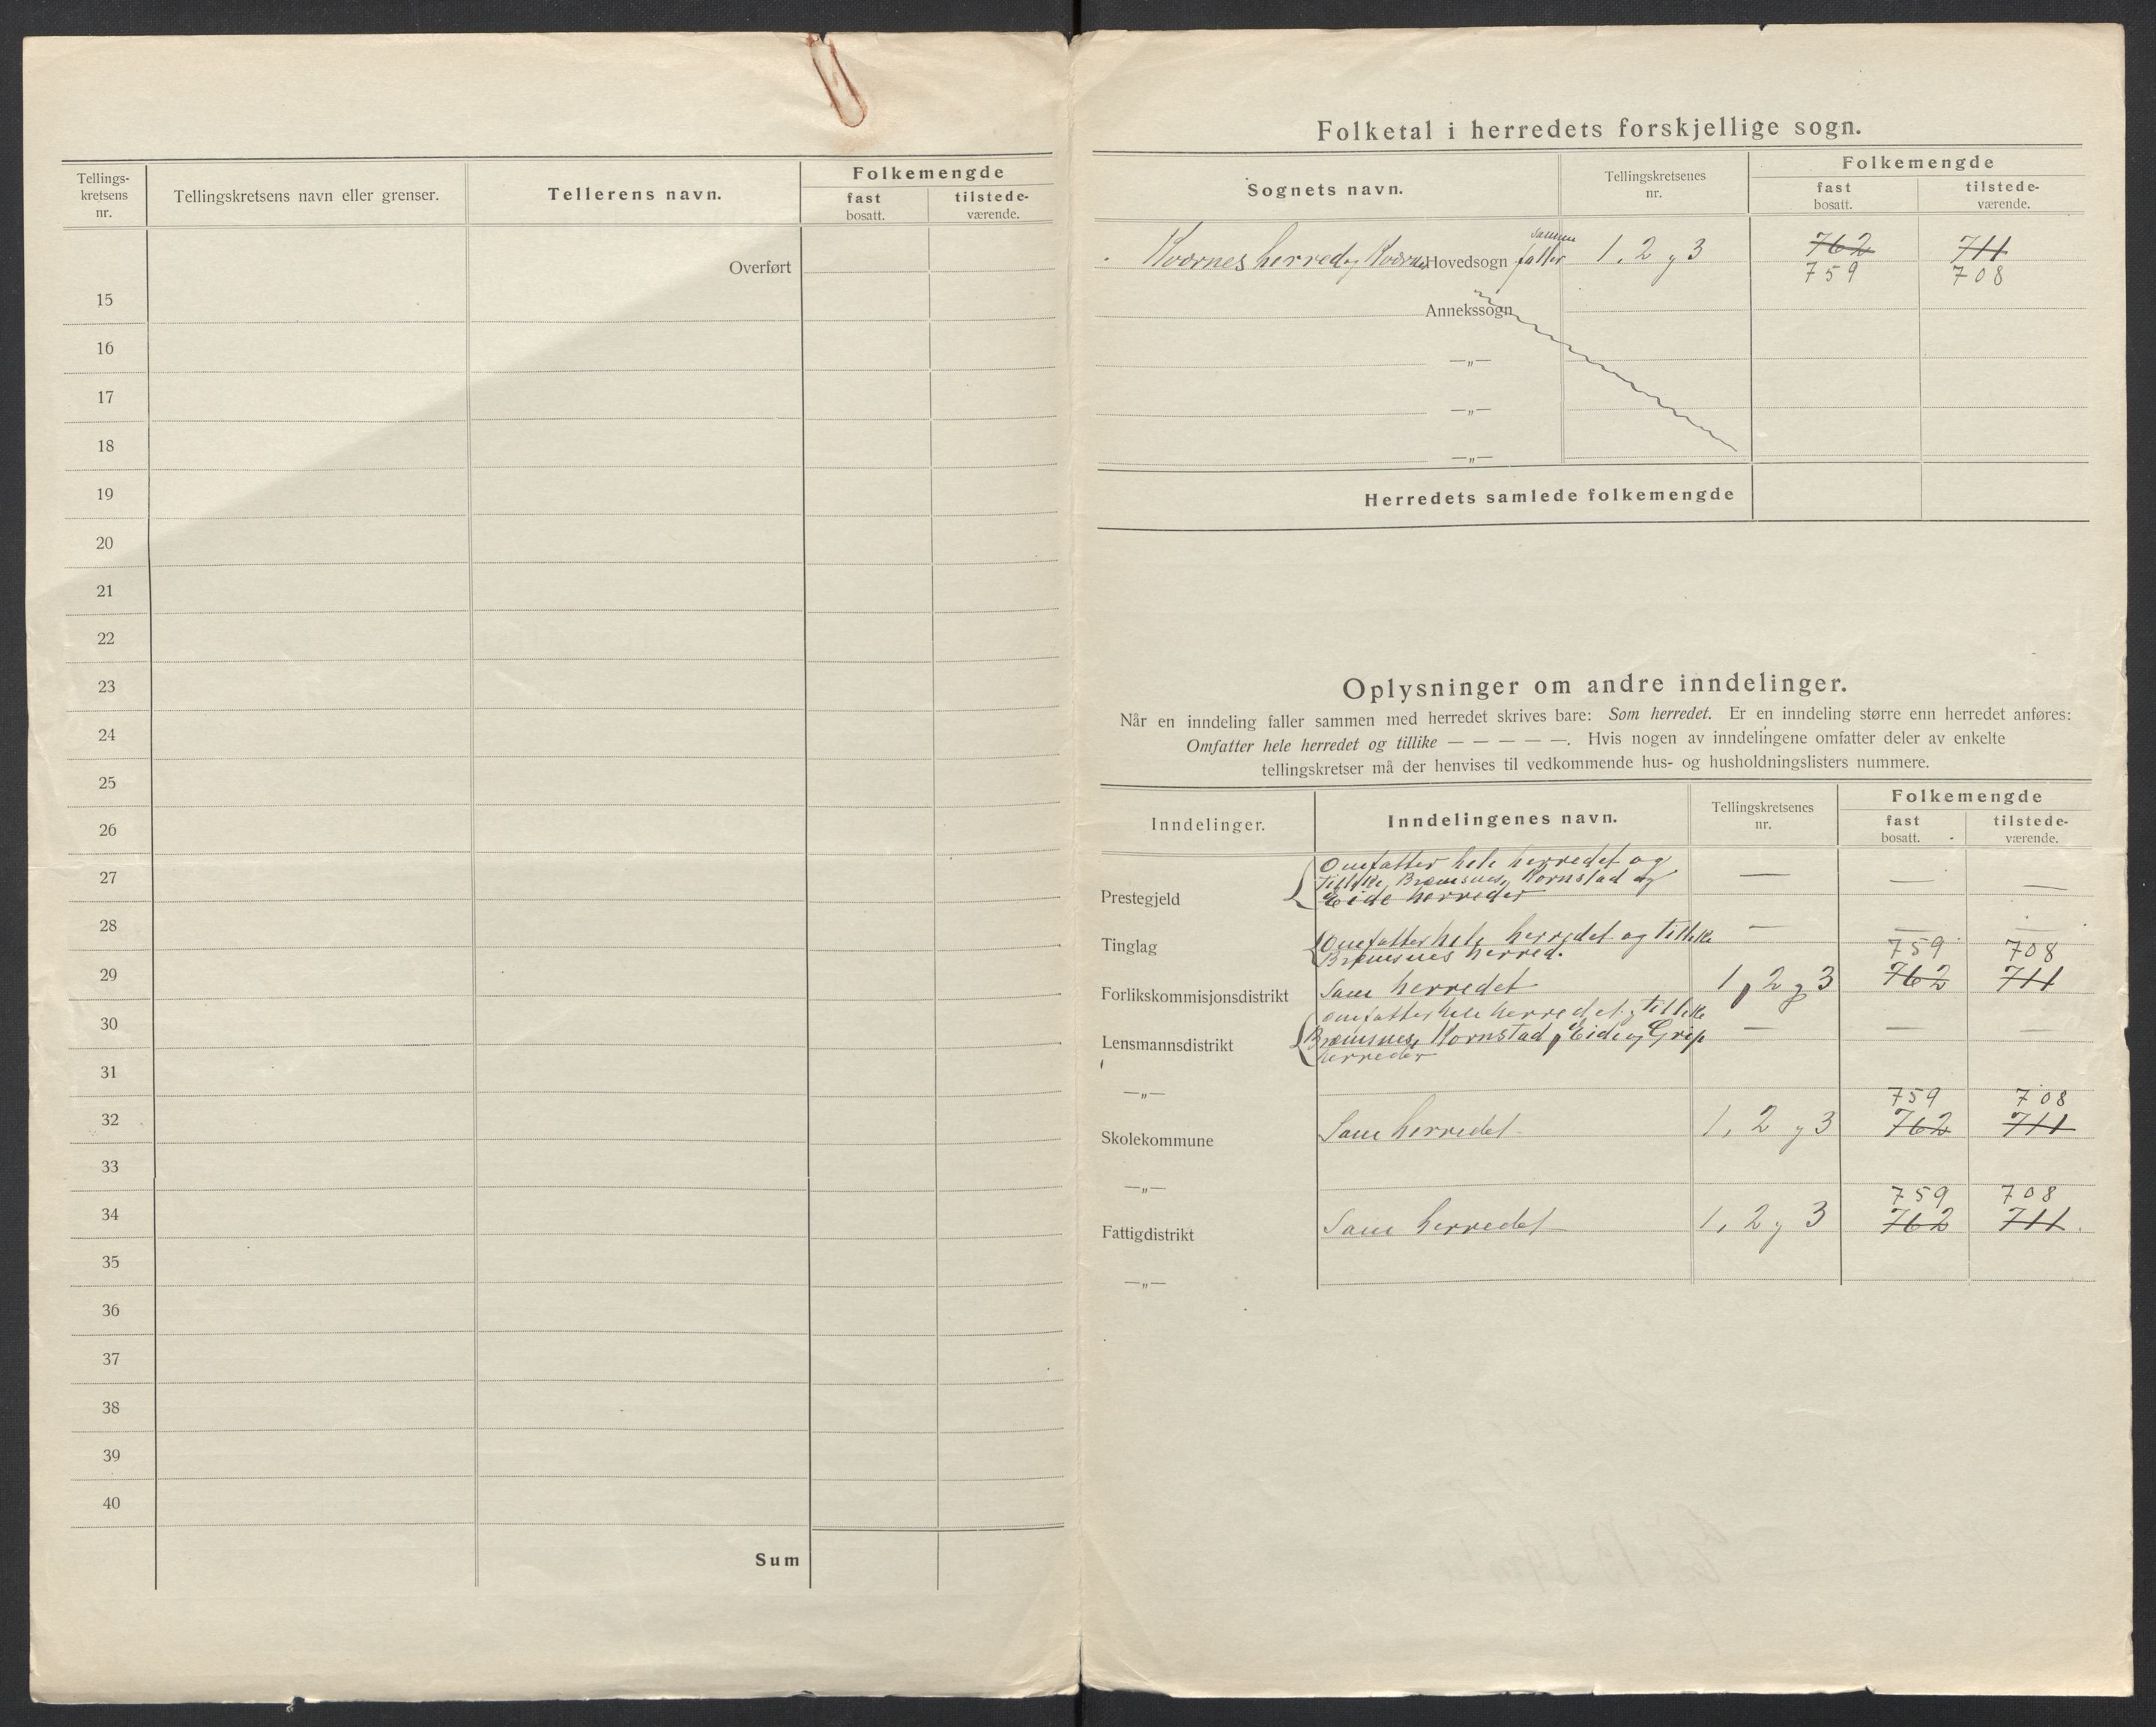 Tellings-
kretsens
nr.
Tellingskretsens navn eller grenser.
Tellerens navn.
Folkemengde
fast
bosatt.
tilstede-
værende.
Overført
15
16
17
18
19
20
21
22
23
24
25
26
27
28
29
30
31
32
33
34
35
36
37
38
39
40
Sum
Folketal i herredets forskjellige sogn.
Sognets navn.
Tellingskretsenes
nr.
Folkemengde
fast
bosatt.
tilstede-
værende.
Kvernes herred og Kvernes Hovedsogn sammen
falder 1, 2 og 3 762 711
759 708
Annekssogn
—„—
—„—
—„—
Herredets samlede folkemengde
Oplysninger om andre inndelinger.
Når en inndeling faller sammen med herredet skrives bare: Som herredet. Er en inndeling større enn herredet anføres:
Omfatter hele herredet og tillike — — — — —. Hvis nogen av inndelingene omfatter deler av enkelte
tellingskretser må der henvises til vedkommende hus- og husholdningslisters nummere.
Inndelinger.
Inndelingenes navn.
Tellingskretsenes
nr.
Folkemengde
fast
bosatt.
tilstede-
værende.
Omfatter hele herredet og
tillike Bremsnes, Kornstad og
Prestegjeld Eide herreder — — —
Omfatter hele herredet og tillike — — —
Tinglag Bremsnes herred.
759 708
Forlikskommisjonsdistrikt Som herredet 1, 2 og 3 762 711
omfatter hele herredet og tillike
Lensmannsdistrikt Bremsnes, Kornstad, Eide og Grip — — —
herreder
—„—
759 708
Skolekommune Som herredet 1, 2 og 3 762 711
—„—
759 708
Fattigdistrikt Som herredet 1, 2 og 3 762 711.
—„—